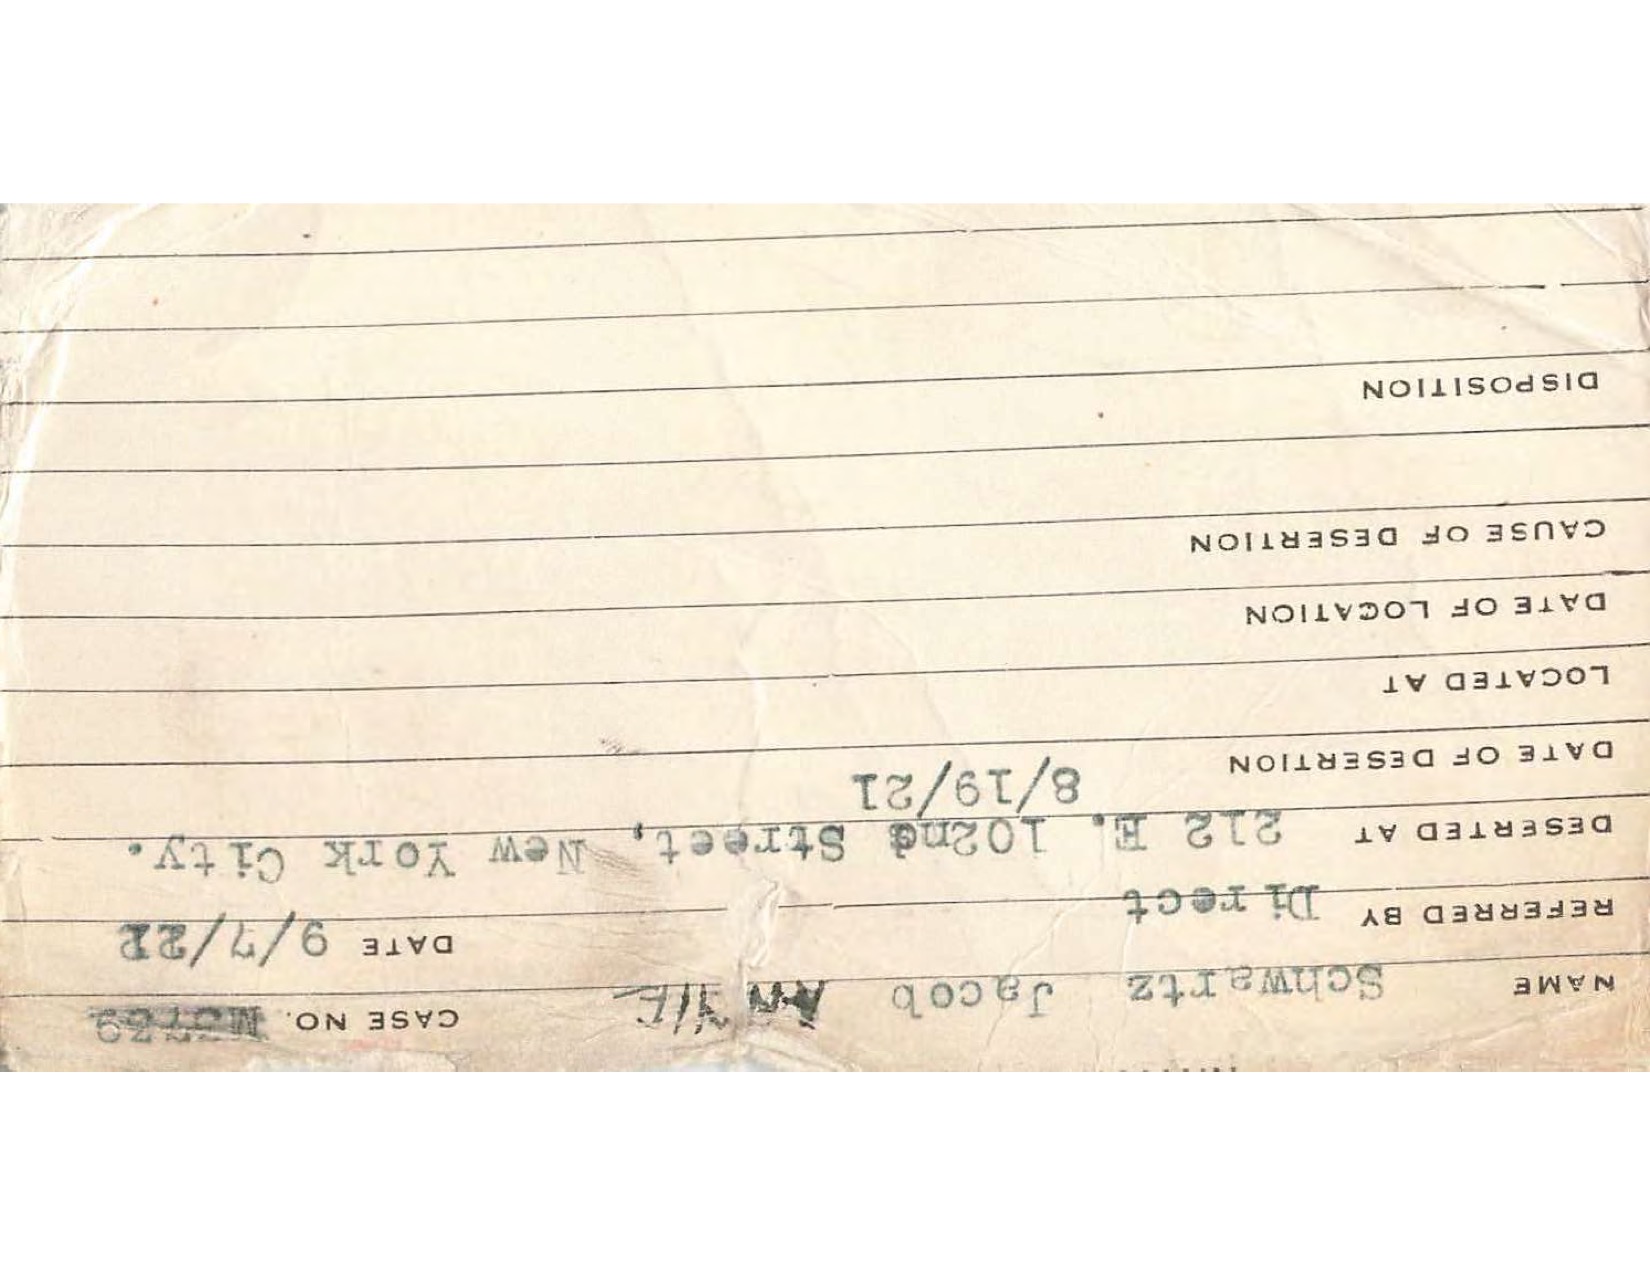 NAME Schwartz Jacob ANNIE CASE NO.
REFERRED BY Direct DATE 9/7/21
DESERTED AT 212 E. 102nd Street, New York City.
DATE OF DESERTION 8/19/21
LOCATED AT
DATE OF LOCATION
CAUSE OF DESERTION
DISPOSITION